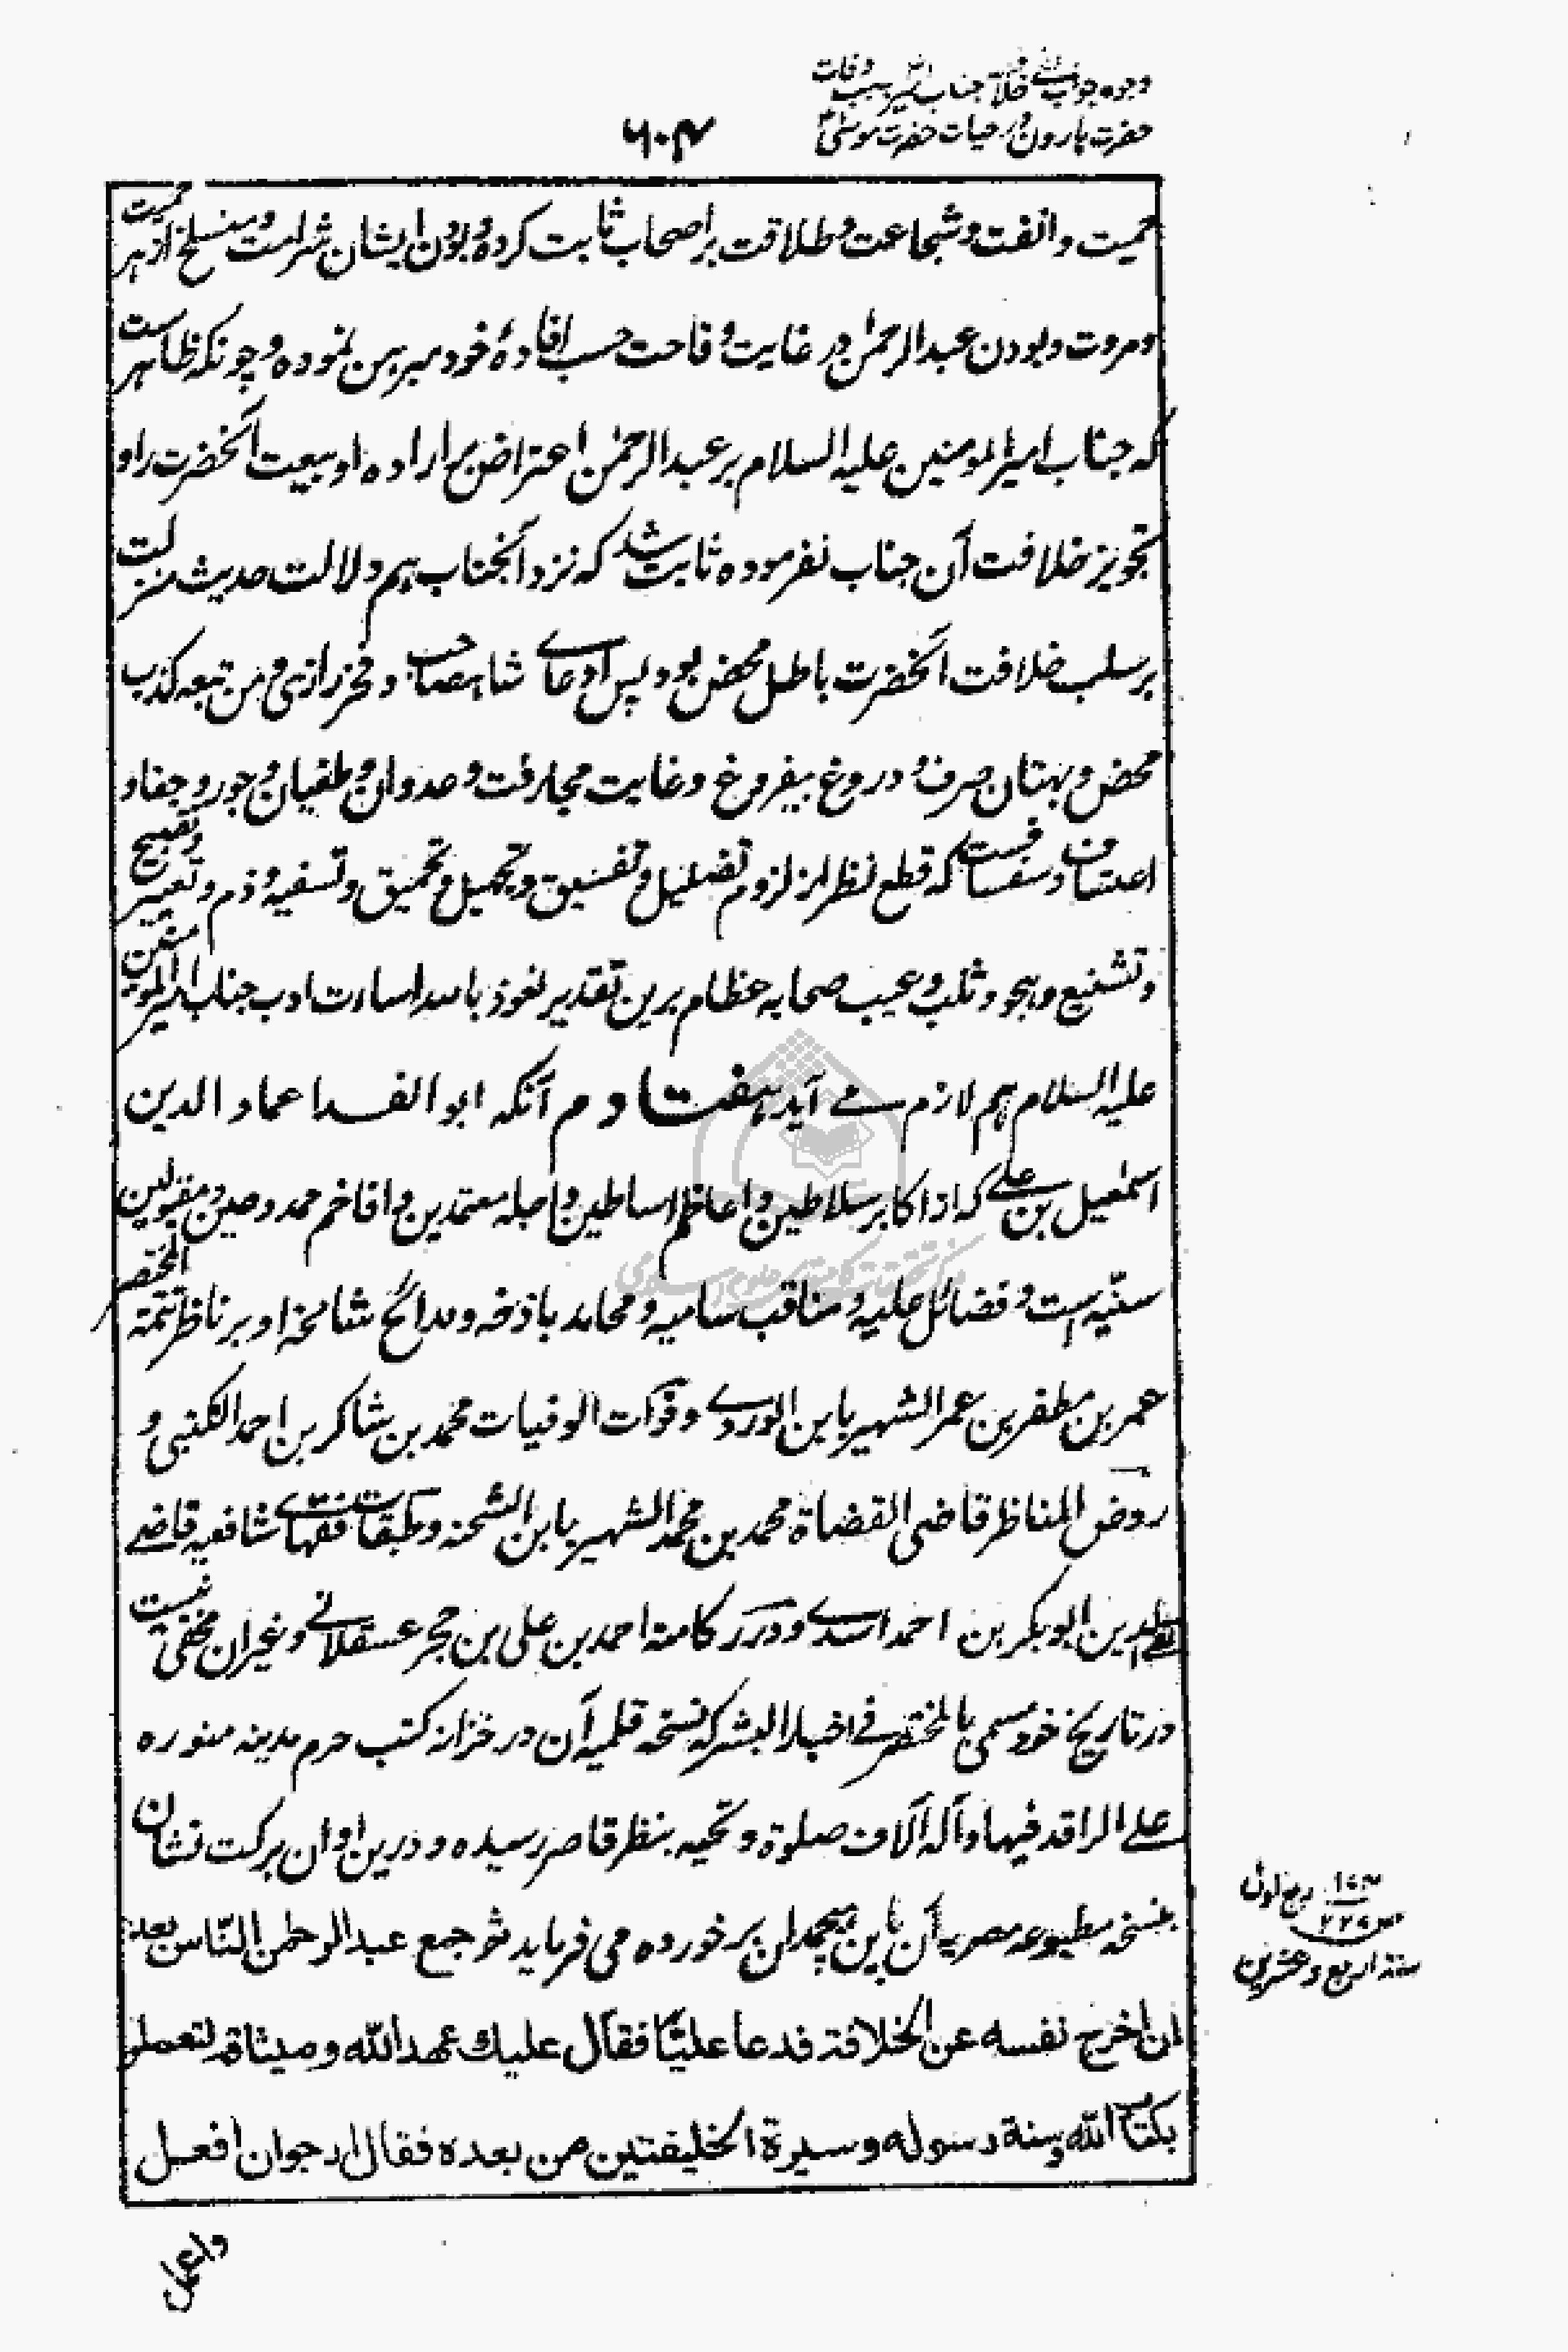 وجوه جواب نفی خلافة جناب امیر بسبب وفات
حضرت هارون در حیات حضرت موسی
۶۰۴
حمیت وانفت وشجاعت وطلاقت بر اصحاب ثابت کرده و بودن ایشان شرامت ومنسلخ از هر حمیت
ومروت وبودن عبدالرحمن در غایت وقاحت حسب افادهٔ خود مبرهن نموده وچونکه ظاهرست
که جناب امیرالمومنین علیه السلام بر عبدالرحمن اعتراض بر اراده او بیعت آنحضرت را و
تجویز خلافت آن جناب نفرموده ثابت شد که نزد آنجناب هم دلالت حدیث منزلت
بر سلب خلافت آنحضرت باطل محض بود پس ادعای شاهصاحب و فخر رازی و من تبعه کذب
محض و بهتان صرف و دروغ بیفروغ وغایت مجازفت وعدوان وطغیان وجور وجفاو
اعتساف وسفساف ست که قطع نظر از لزوم تضلیل وتفسیق وتجهیل وتحمیق وتسفیه وذم وتعییر وتقبیح
وتشنیع وهجو وثلب وعیب صحابه عظام برین تقدیر نعوذ بالله اساءت ادب جناب امیرالمومنین
علیه السلام هم لازم می آید هفتادم آنکه ابو الفدا عماد الدین
اسمعیل بن علی که از اکابر سلاطین واعاظم اساطین واجله معتمدین وافاخم ممدوحین ومقبولین
سنیه است وفضائل جلیه ومناقب سامیه ومحامد باذخه ومدائح شامخه او بر ناظر تتمة المختصر
عمر بن مظفر بن عمر الشهیر بابن الوردی وفوات الوفیات محمد بن شاکر بن احمد الکتبی و
روض المناظر قاضی القضاة محمد بن محمد الشهیر بابن الشحنه وطبقات فقهای شافعیه قاضی
تقی الدین ابوبکر بن احمد اسدی ودرر کامنه احمد بن علی بن حجر عسقلانی وغیر ان مخفی نیست
در تاریخ خود مسمی بالمختصر فی اخبار البشر که نسخه قلمیه آن در خزانه کتب حرم مدینه منوره
علی الراقد فیها وآله آلاف صلوة وتحیه بنظر قاصر رسیده ودرین اوان برکت نشان
بنسخه مطبوعه مصریه آن باین هیچمدان برخورده می فرماید ثم جمع عبد الرحمن الناس بعد
ان اخرج نفسه عن الخلافة فدعا علیًّا فقال علیك عهد الله ومیثاقه لتعملن
بکتاب الله وسنة رسوله وسیرة الخلیفتین من بعده فقال ارجوان افعل
واعمل
ربیع الاول
سنة اربع وعشرین